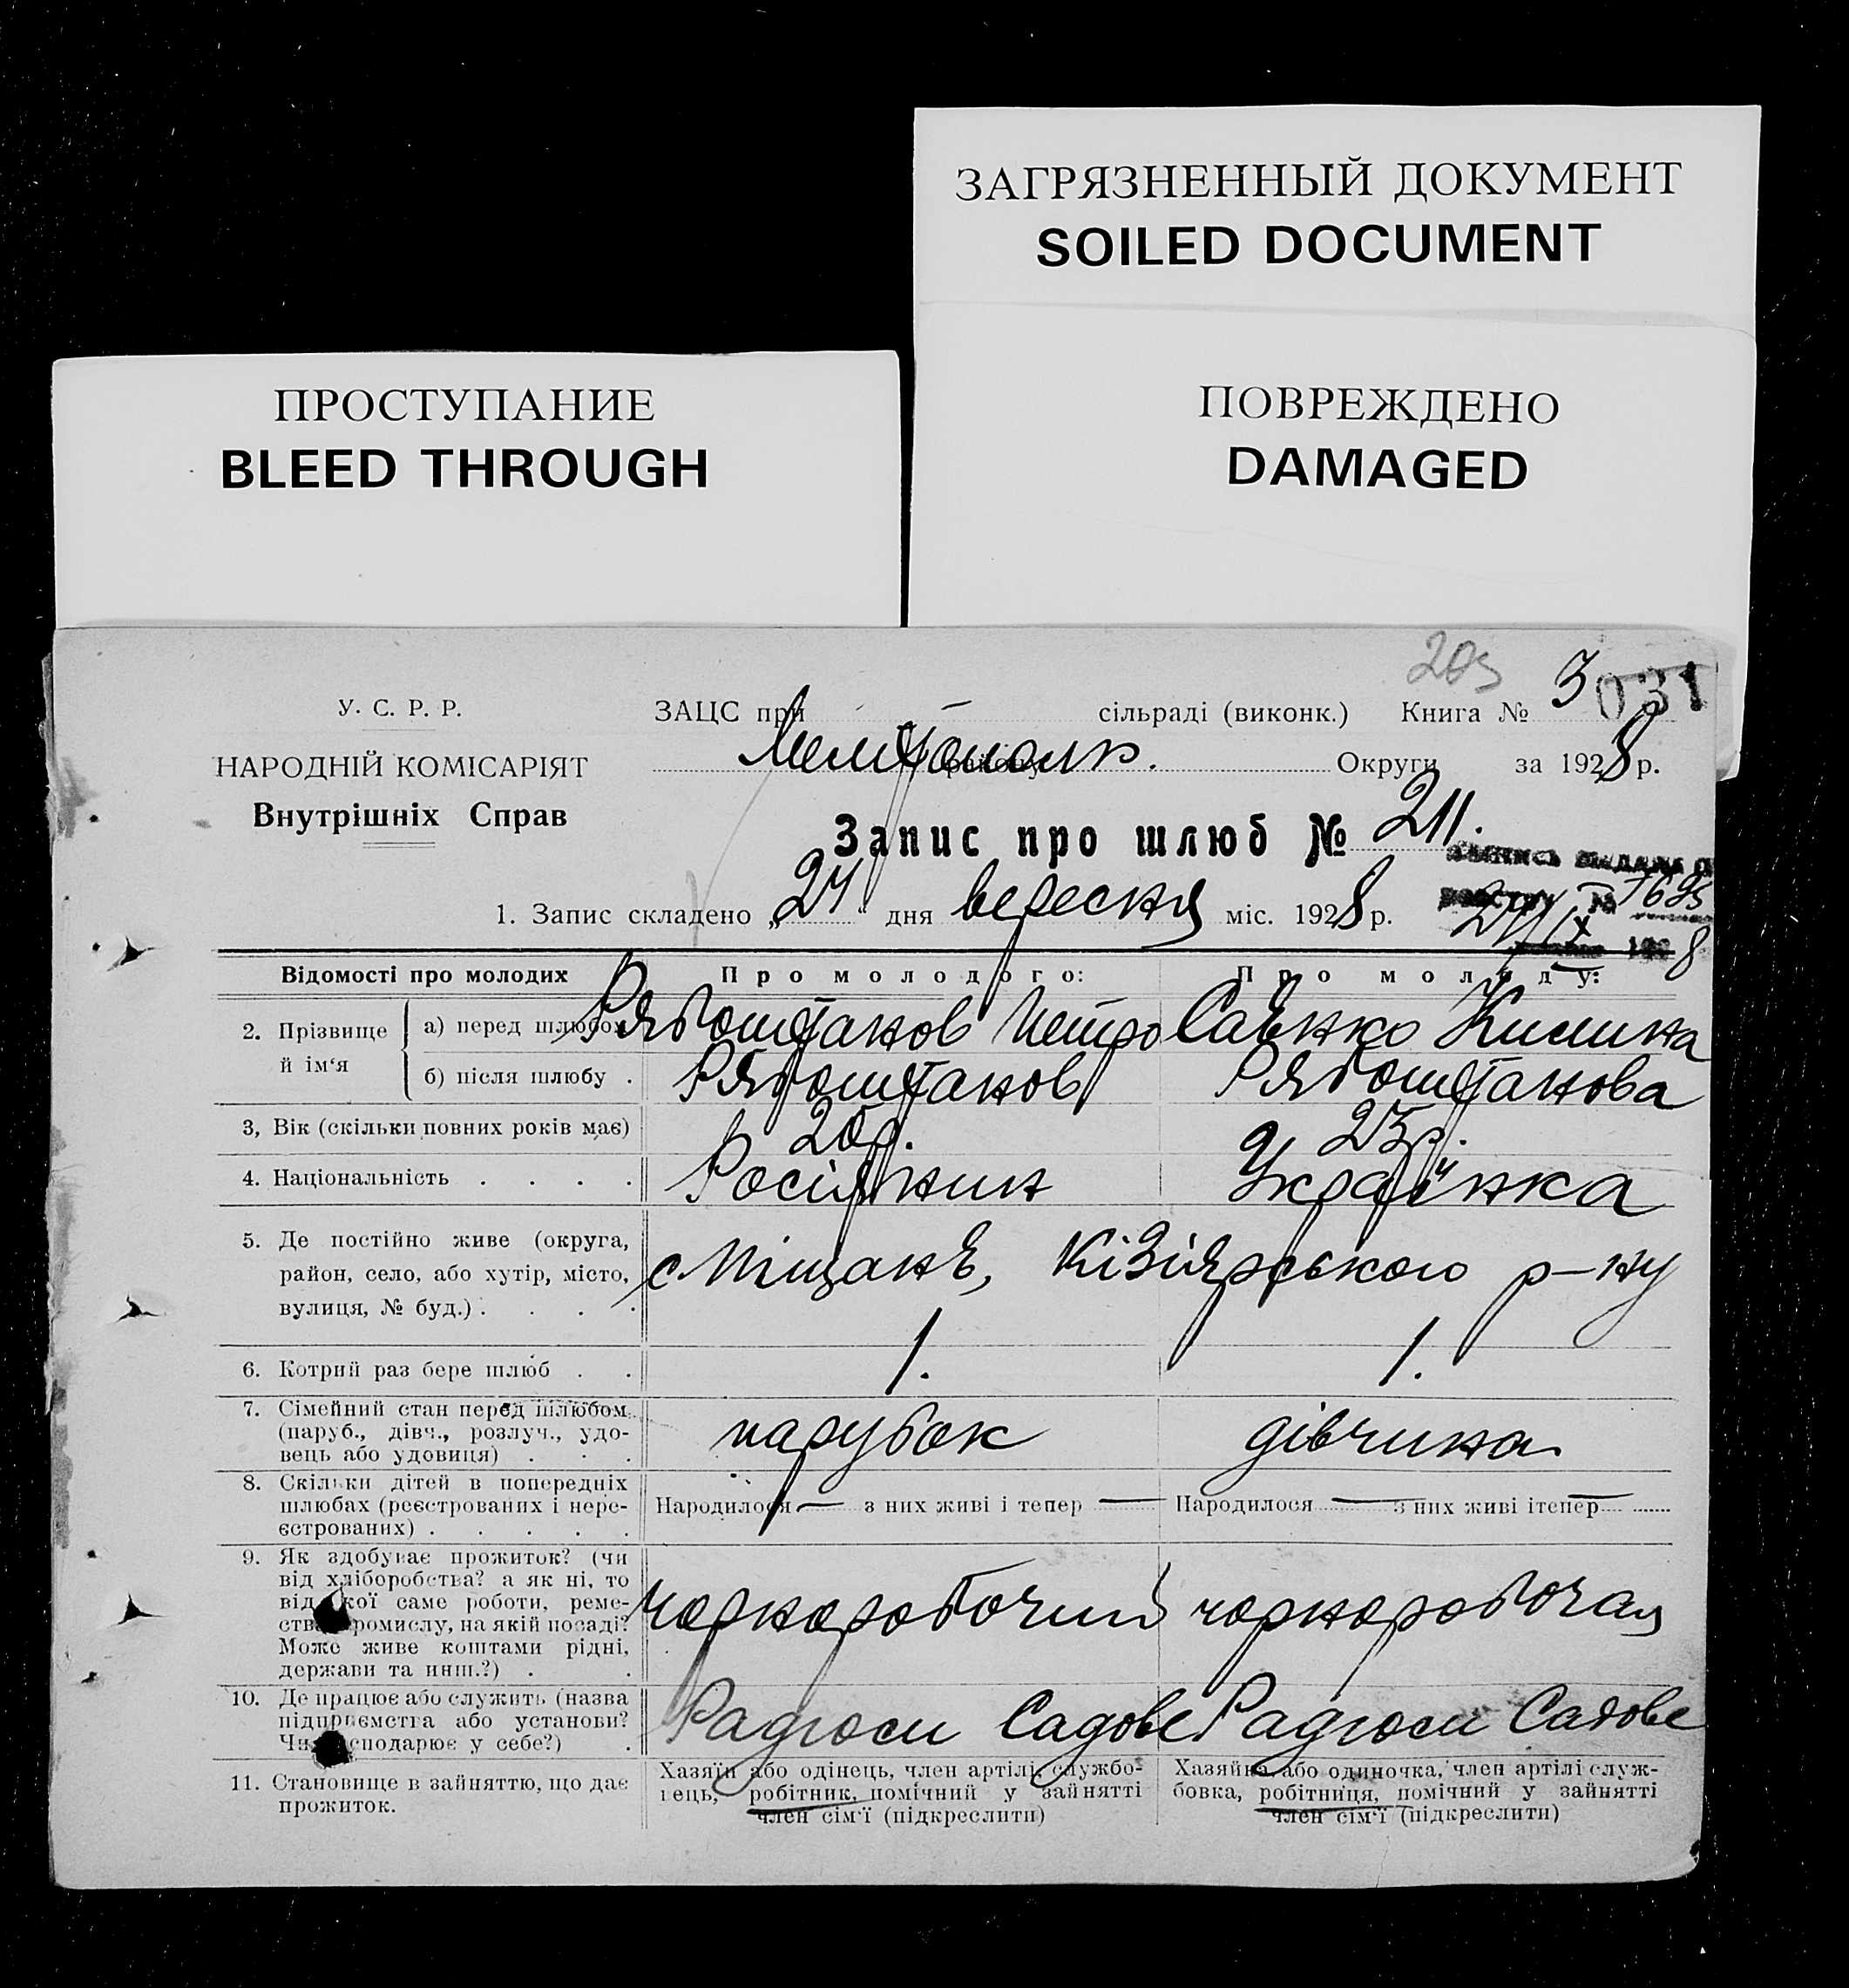 ЗАГРЯЗНЕННЫЙ ДОКУМЕНТ
SOILED DOCUMENT
ПРОСТУПАНИЕ
BLEED THROUGH
ПОВРЕЖДЕНО
DAMAGED
203
У. С. Р. Р.
ЗАЦС при сільраді (виконк.) Книга № 3 031
НАРОДНІЙ КОМІСАРІЯТ
Мелітопольк. району Округи за 1928 р.
Внутрішніх Справ
Запис про шлюб № 211.
реєстру № 7625
24/IX 1928
1. Запис складено „24" дня вересня міс. 1928 р.
Відомості про молодих Про молодого: Про молоду:
2. Прізвище й ім‘я
а) перед шлюбом Рябоштанов Петро Савенко Килина
б) після шлюбу . Рябоштанов Рябоштанова
3, Вік (скільки повних років має) 20р. 23р.
4. Національність . . . . Росіянин Українка
5. Де постійно живе (округа,
район, село, або хутір, місто,
вулиця, № буд.) . . . .
с Міщанє, Кізіярського р-ну
6. Котрий раз бере шлюб . . 1. 1.
7. Сімейний стан перед шлюбом
(паруб., дівч., розлуч., удо-
вець або удовиця) . . .
парубок дівчина
8. Скільки дітей в попередніх
шлюбах (реєстрованих і нере-
єстрованих) . . . . .
Народилося — з них живі і тепер — Народилося — з них живі ітепер —
9. Як здобуває прожиток? (чи
від хліборобства? а як ні, то
від кої саме роботи, реме-
ства ромислу, на якій посаді?
Може живе коштами рідні,
держави та инш.?) . .
чорноробочий чорноробочая
10. Де працює або служить (назва
підприємства або установи?
Чи сподарює у себе?) .
Радгосп Садове Радгосп Садове
11. Становище в зайняттю, що дає
прожиток.
Хазяїн або одінець, член артілі, службо-
вець, робітник, помічний у зайнятті
член сім'ї (підкреслити)
Хазяйка або одиночка, член артілі служ-
бовка, робітниця, помічний у зайнятті
член сім'ї (підкреслити)